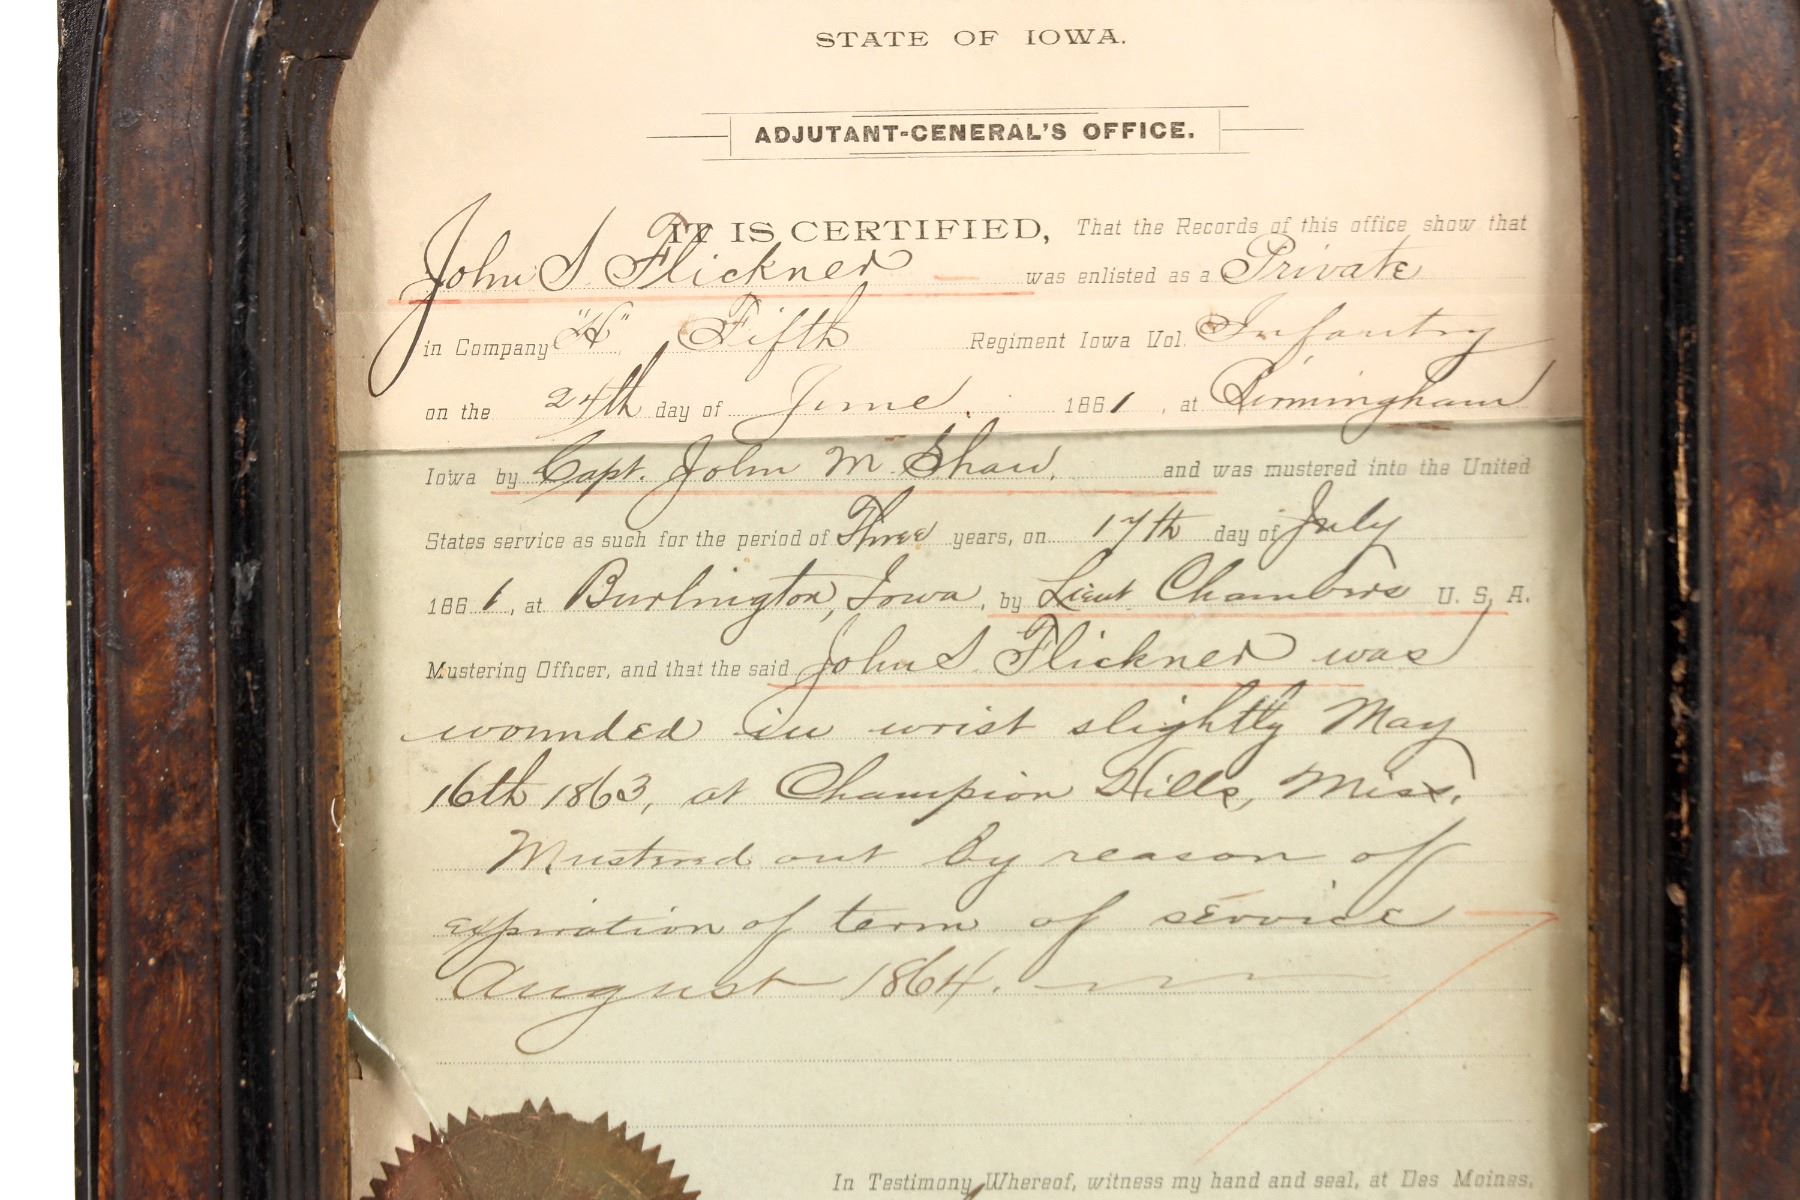 STATE OF IOWA.
ADJUTANT-GENERAL'S OFFICE.
IT IS CERTIFIED, That the Records of this office show that
John S. Flickner was enlisted as a Private
in Company "H" Fifth Regiment Iowa Vol. Infantry
on the 24th day of June. 1861, at Birmingham
Iowa by Capt. John M. Shaw, and was mustered into the United
States service as such for the period of Three years, on 17th day of July
1861, at Burlington, Iowa, by Lieut. Chambers U. S. A.
Mustering Officer, and that the said John S. Flickner was
wounded in wrist slightly May
16th 1863, at Champion Hills, Miss.
Mustered out by reason of
expiration of term of service
August 1864.
In Testimony Whereof, witness my hand and seal, at Des Moines,